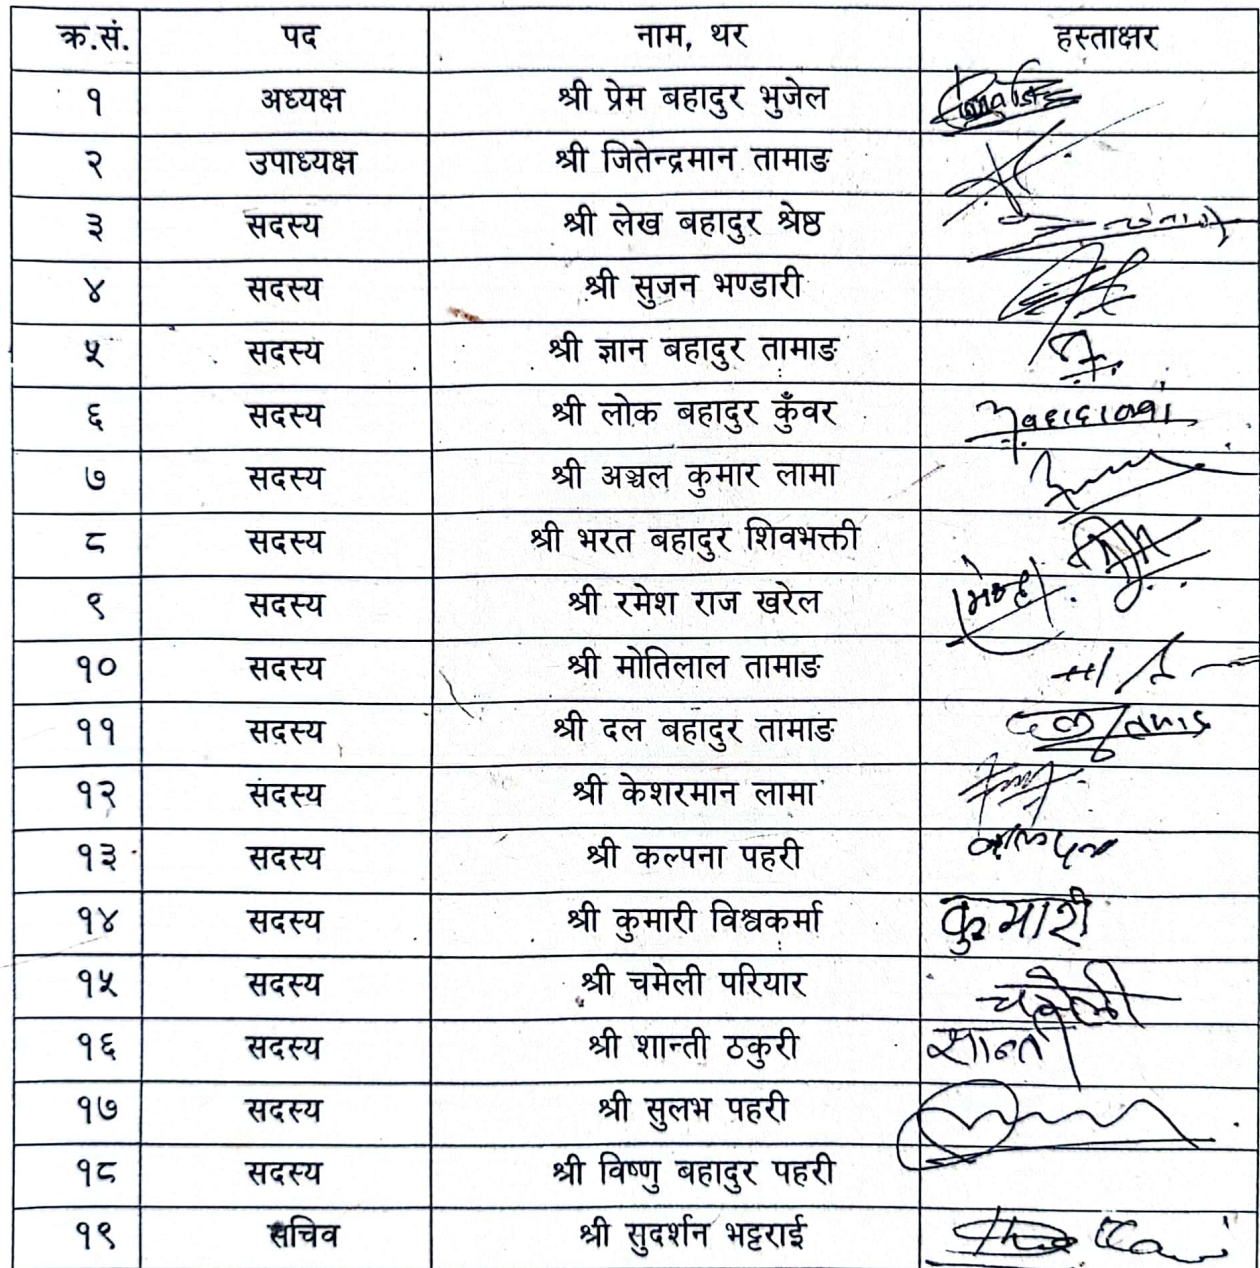 क्र.सं. पद नाम, थर हस्ताक्षर
१ अध्यक्ष श्री प्रेम बहादुर भुजेल
२ उपाध्यक्ष श्री जितेन्द्रमान तामाङ
३ सदस्य श्री लेख बहादुर श्रेष्ठ
४ सदस्य श्री सुजन भण्डारी
५ सदस्य श्री ज्ञान बहादुर तामाङ
६ सदस्य श्री लोक बहादुर कुँवर
७ सदस्य श्री अञ्चल कुमार लामा
८ सदस्य श्री भरत बहादुर शिवभक्ती
९ सदस्य श्री रमेश राज खरेल
१० सदस्य श्री मोतिलाल तामाङ
११ सदस्य श्री दल बहादुर तामाङ
१२ सदस्य श्री केशरमान लामा
१३ सदस्य श्री कल्पना पहरी
१४ सदस्य श्री कुमारी विश्वकर्मा कुमारी
१५ सदस्य श्री चमेली परियार
१६ सदस्य श्री शान्ती ठकुरी सान्ती
१७ सदस्य श्री सुलभ पहरी
१८ सदस्य श्री विष्णु बहादुर पहरी
१९ सचिव श्री सुदर्शन भट्टराई